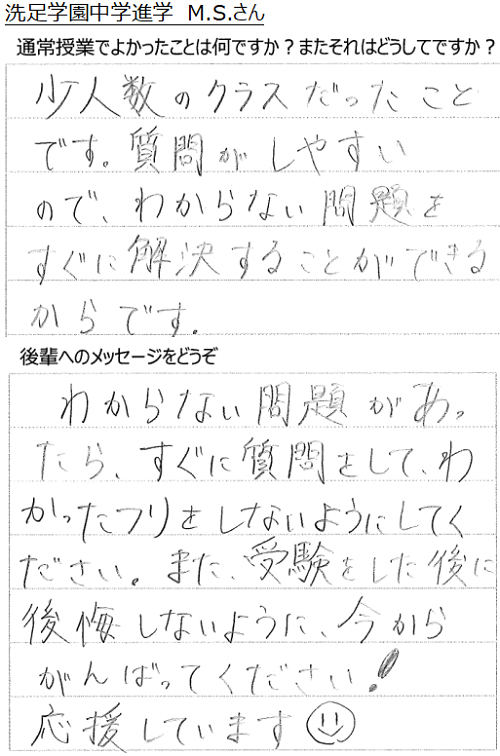 洗足学園中学進学　M.S.さん
通常授業でよかったことは何ですか？またそれはどうしてですか？
少人数のクラスだったこと
です。質問がしやすい
ので、わからない問題を
すぐに解決することができる
からです。
後輩へのメッセージをどうぞ
わからない問題があっ
たら、すぐに質問をして、わ
かったフリをしないようにしてく
ださい。また、受験をした後に
後悔しないように、今から
がんばってください！
応援しています